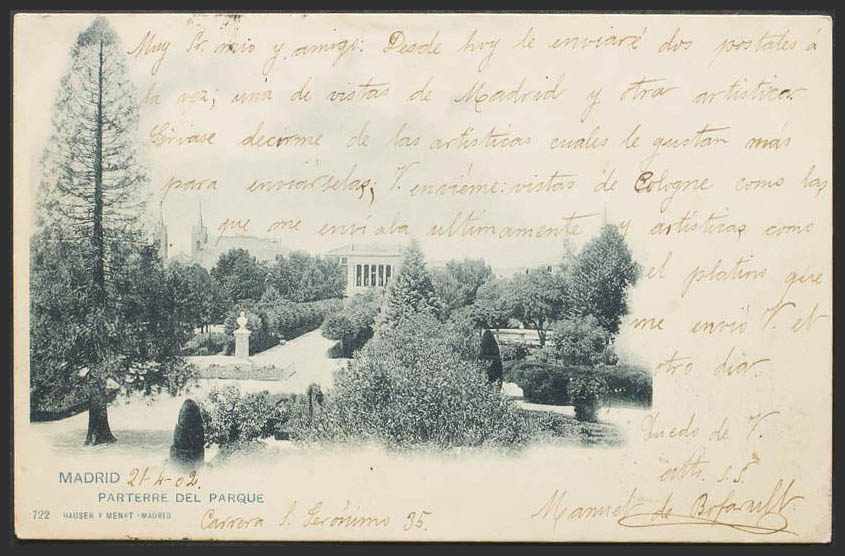 Muy Sr. mio y amigo: Desde hoy le enviaré dos postales á
la vez; una de vistas de Madrid y otra artistica.
Sirvase decirme de las artísticas cuales le gustan más
para enviárselas; V. envieme: vistas de Cologne como las
que me enviaba ultimamente y artísticas como
el platino que
me envió V. el
otro dia.
Quedo de V.
affi. s.s.
Manuel de Bofarull.
MADRID 21-4-02.
PARTERRE DEL PARQUE
722 HAUSER Y MENET - MADRID
Carrera S. Gerónimo 35.